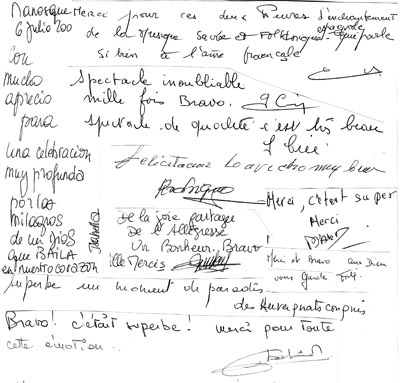 Manosque
6 Juillet 200
Merci pour ces deux heures d'enchantement
de la musique sacrée et Folklorique espagnole qui parle
si bien à l'âme française
Con
mucho
aprecio
para
una celebración
muy profunda
por los
milagros
de un Dios
que BAILA
en nuestro corazón
Spectacle inoubliable
mille fois Bravo.
Spectacle de qualité c'est très beau
Felicitaciones Lo avecho muy bien
Merci, c'était super
Merci
De la joie partagée
De l'Allégresse
Un Bonheur. Bravo
Mille Mercis
Merci et Bravo que Dieu
vous Garde
superbe un moment de paradis
des Auvergnats conquis
Bravo! c'était superbe! merci pour toute
cette émotion...